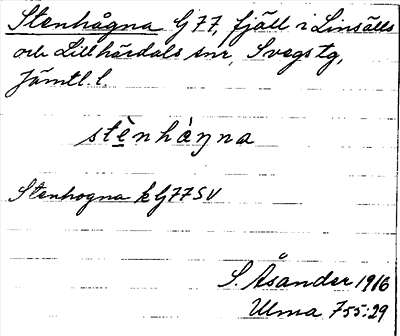 Stenhågna G 77, fjäll i Linsälls
och Lillhärdals snr, Svegs tg,
Jämtl. l.
stènhàŋna
Stenhogna k G 77 SV
S. Åsander 1916
Ulma 755:29